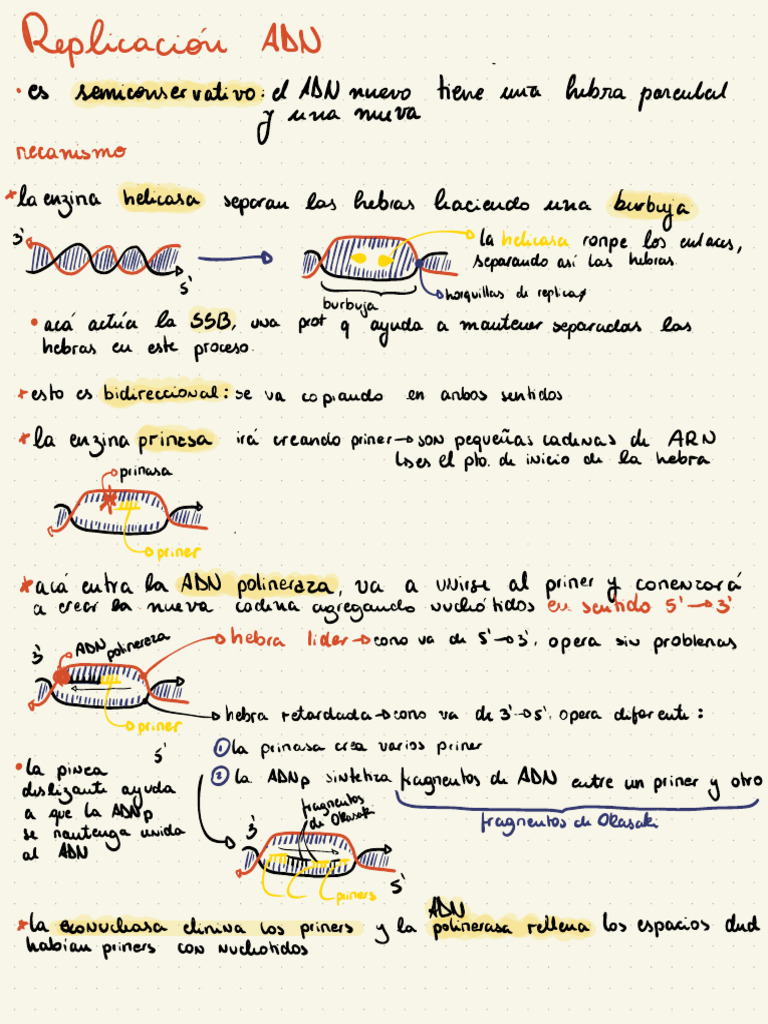 Replicación ADN
• es semiconservativo: el ADN nuevo tiene una hebra parental
y una nueva
mecanismo
* la enzima helicasa separan las hebras haciendo una burbuja
3'
5'
burbuja
la helicasa rompe los enlaces,
separando así las hebras.
horquillas de replicaº
• acá actúa la SSB, una prot q ayuda a mantener separadas las
hebras en este proceso.
* esto es bidireccional: se va copiando en ambos sentidos
* la enzima primasa irá creando primer → son pequeñas cadenas de ARN
↳ es el pto. de inicio de la hebra
primasa
primer
* acá entra la ADN polimeraza, va a unirse al primer y comenzará
a crear la nueva cadena agregando nucleótidos en sentido 5' → 3'
3'
ADN
polimeraza
primer
5'
hebra lider → como va de 5' → 3', opera sin problemas
hebra retardada → como va de 3' → 5', opera diferente:
① la primasa crea varios primer
② la ADNp sintetiza fragmentos de ADN entre un primer y otro
fragmentos de Okasaki
• la pinza
deslizante ayuda
a que la ADNp
se mantenga unida
al ADN
fragmentos
de Okasaki
3'
5'
primers
* la exonucleasa elimina los primers y la ADN polimerasa rellena los espacios dnd
habían primers con nucleótidos